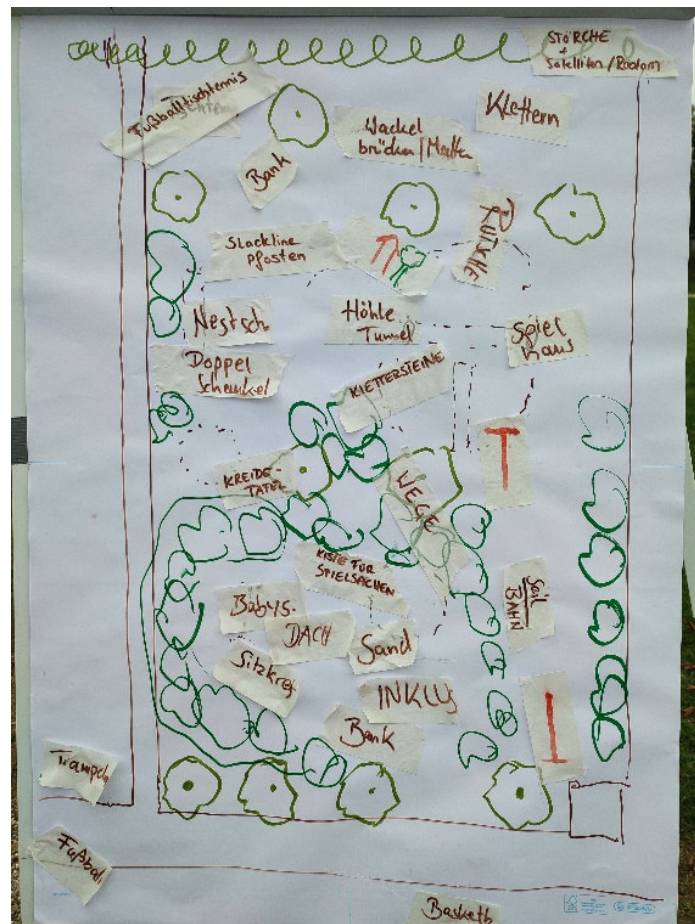 STÖRCHE
+
Satelliten/Radom
Fußballtischtennis
Klettern
Wackel
brücken/Matten
Bank
RUTSCHE
Slackline
pfosten
Nestsch
Höhle
Tunnel
Spiel
haus
Doppel
Schaukel
KLETTERSTEINE
KREIDE-
TAFEL
WEGE
KISTE FÜR
SPIELSACHEN
Seil
BAHN
Babys.
DACH
Sand
Sitzkrei
INKLUS
Bank
Trampoli
Fußball
Basketb